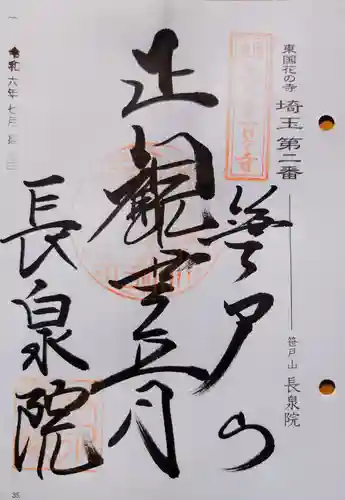 東国花の寺 埼玉第二番
笹戸山 長泉院
笹戸山
正観世音
長泉院
令和六年七月
35